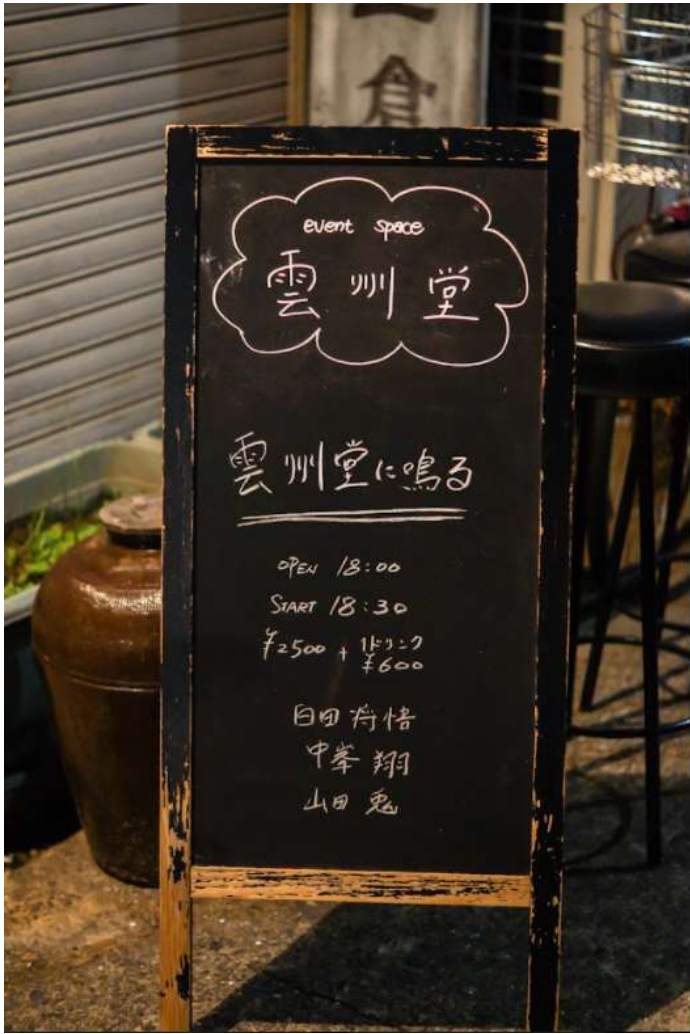 倉
event space
雲州堂
雲州堂に鳴る
OPEN 18:00
START 18:30
¥2500 + 1ドリンク
¥600
臼田 将悟
中峯 翔
山田 兎